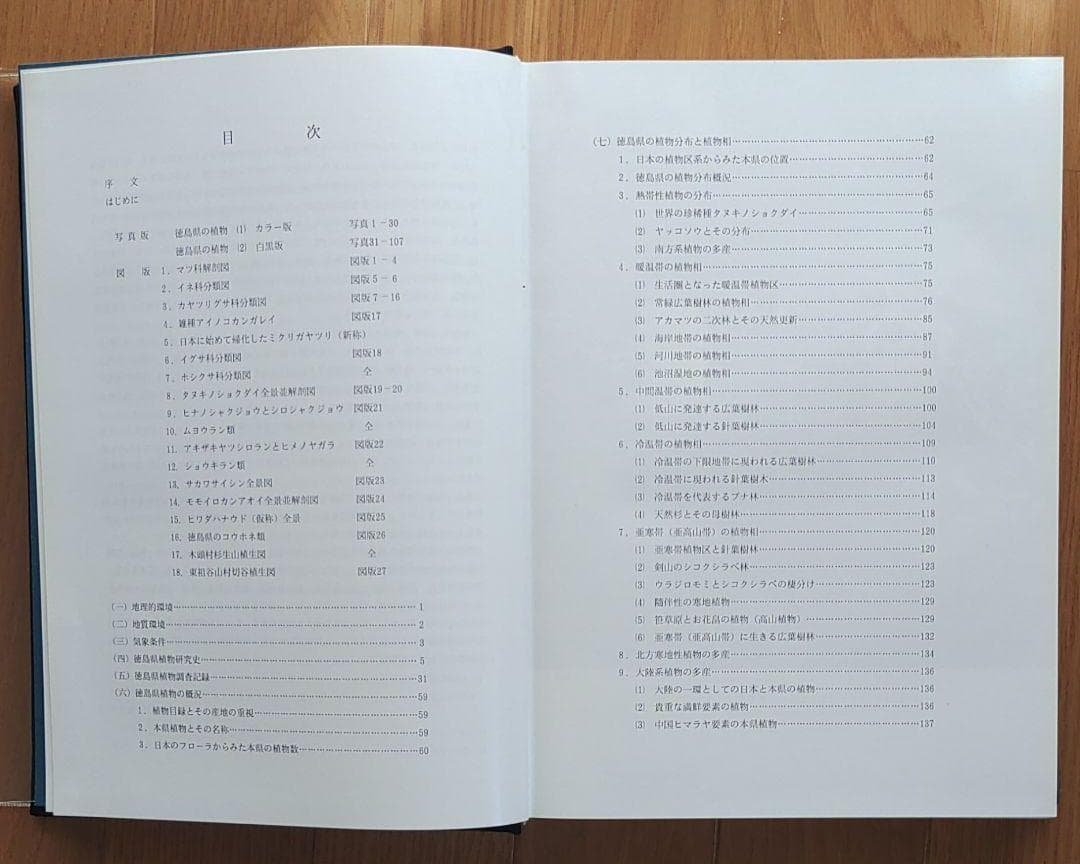 目 次
序 文
はじめに
写真版 徳島県の植物 (1) カラー版 写真1-30
徳島県の植物 (2) 白黒版 写真31-107
図 版 1. マツ科解剖図 図版1-4
2. イネ科分類図 図版5-6
3. カヤツリグサ科分類図 図版7-16
4. 雑種アイノコカンガレイ 図版17
5. 日本に始めて帰化したミクリガヤツリ(新称)
6. イグサ科分類図 図版18
7. ホシクサ科分類図 仝
8. タヌキノショクダイ全景並解剖図 図版19-20
9. ヒナノシャクジョウとシロシャクジョウ 図版21
10. ムヨウラン類 仝
11. アキザキヤツシロランとヒメノヤガラ 図版22
12. ショウキラン類 仝
13. サカワサイシン全景図 図版23
14. モモイロカンアオイ全景並解剖図 図版24
15. ヒワダハナウド(仮称)全景 図版25
16. 徳島県のコウホネ類 図版26
17. 木頭村杉生山植生図 仝
18. 東祖谷山村切谷植生図 図版27
(一) 地理的環境……1
(二) 地質環境……2
(三) 気象条件……3
(四) 徳島県植物研究史……5
(五) 徳島県植物調査記録……31
(六) 徳島県植物の概況……59
1. 植物目録とその産地の重視……59
2. 本県植物とその名称……59
3. 日本のフローラからみた本県の植物数……60
(七) 徳島県の植物分布と植物相……62
1. 日本の植物区系からみた本県の位置……62
2. 徳島県の植物分布概況……64
3. 熱帯性植物の分布……65
(1) 世界の珍稀種タヌキノショクダイ……65
(2) ヤッコソウとその分布……71
(3) 南方系植物の多産……73
4. 暖温帯の植物相……75
(1) 生活圏となった暖温帯植物区……75
(2) 常緑広葉樹林の植物相……76
(3) アカマツの二次林とその天然更新……85
(4) 海岸地帯の植物相……87
(5) 河川地帯の植物相……91
(6) 池沼湿地の植物相……94
5. 中間温帯の植物相……100
(1) 低山に発達する広葉樹林……100
(2) 低山に発達する針葉樹林……104
6. 冷温帯の植物相……109
(1) 冷温帯の下限地帯に現われる広葉樹林……110
(2) 冷温帯に現われる針葉樹木……113
(3) 冷温帯を代表するブナ林……114
(4) 天然杉とその母樹林……118
7. 亜寒帯(亜高山帯)の植物相……120
(1) 亜寒帯植物区と針葉樹林……120
(2) 剣山のシコクシラベ林……123
(3) ウラジロモミとシコクシラベの棲分け……123
(4) 随伴性の寒地植物……129
(5) 笹草原とお花畠の植物(高山植物)……129
(6) 亜寒帯(亜高山帯)に生きる広葉樹林……132
8. 北方寒地性植物の多産……134
9. 大陸系植物の多産……136
(1) 大陸の一環としての日本と本県の植物……136
(2) 貴重な満鮮要素の植物……136
(3) 中国ヒマラヤ要素の本県植物……137